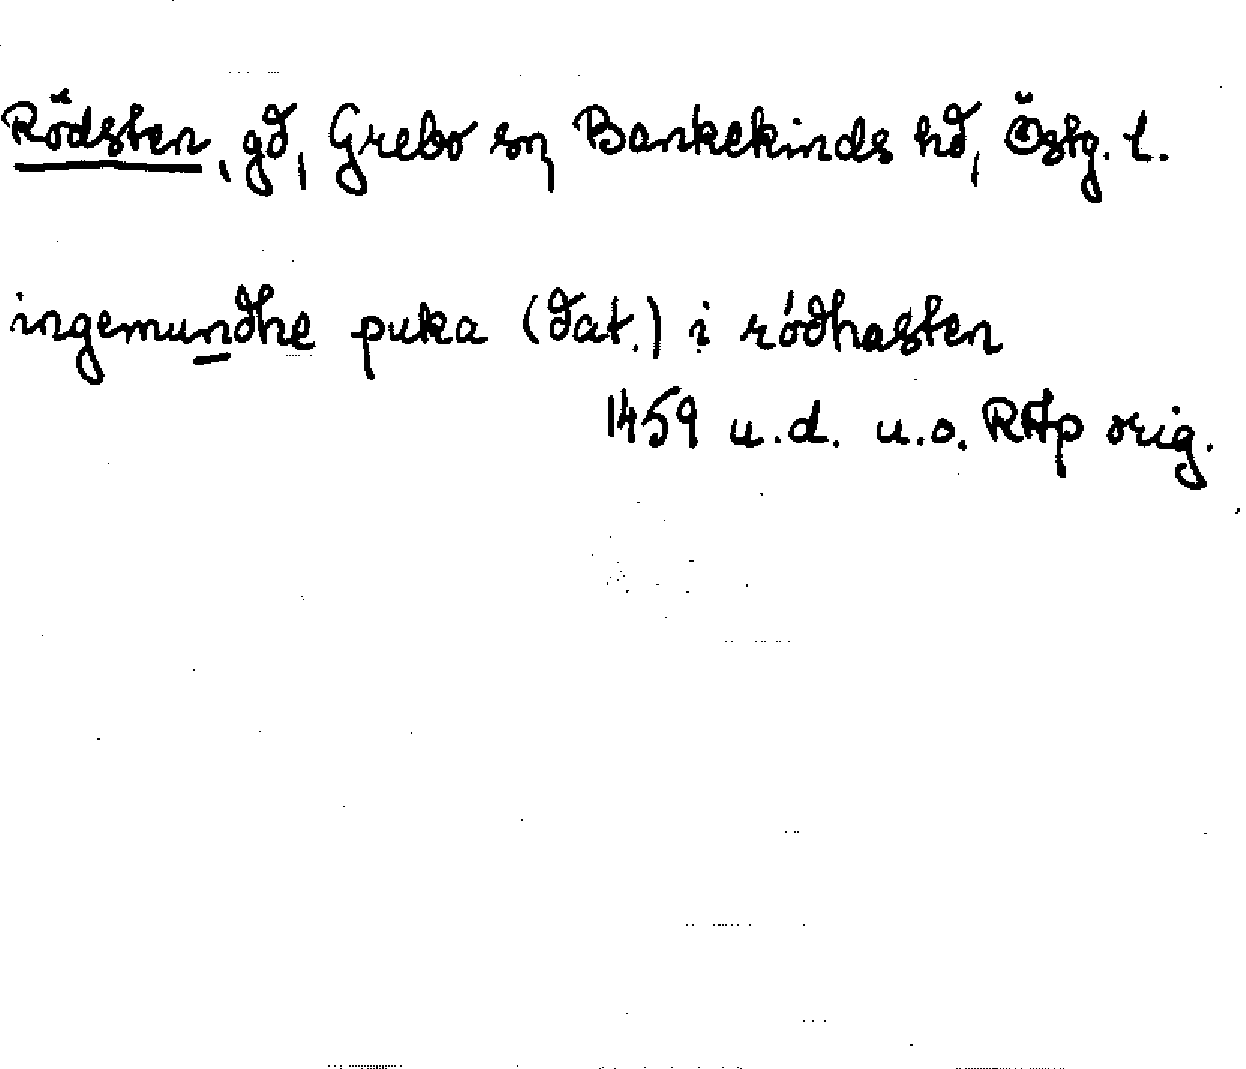 Rödsten, gd, Grebo sn, Bankekinds hd, Östg. l.
ingemundhe puka (dat.) iródhasten
1459 u.d. u.o. RAp orig.